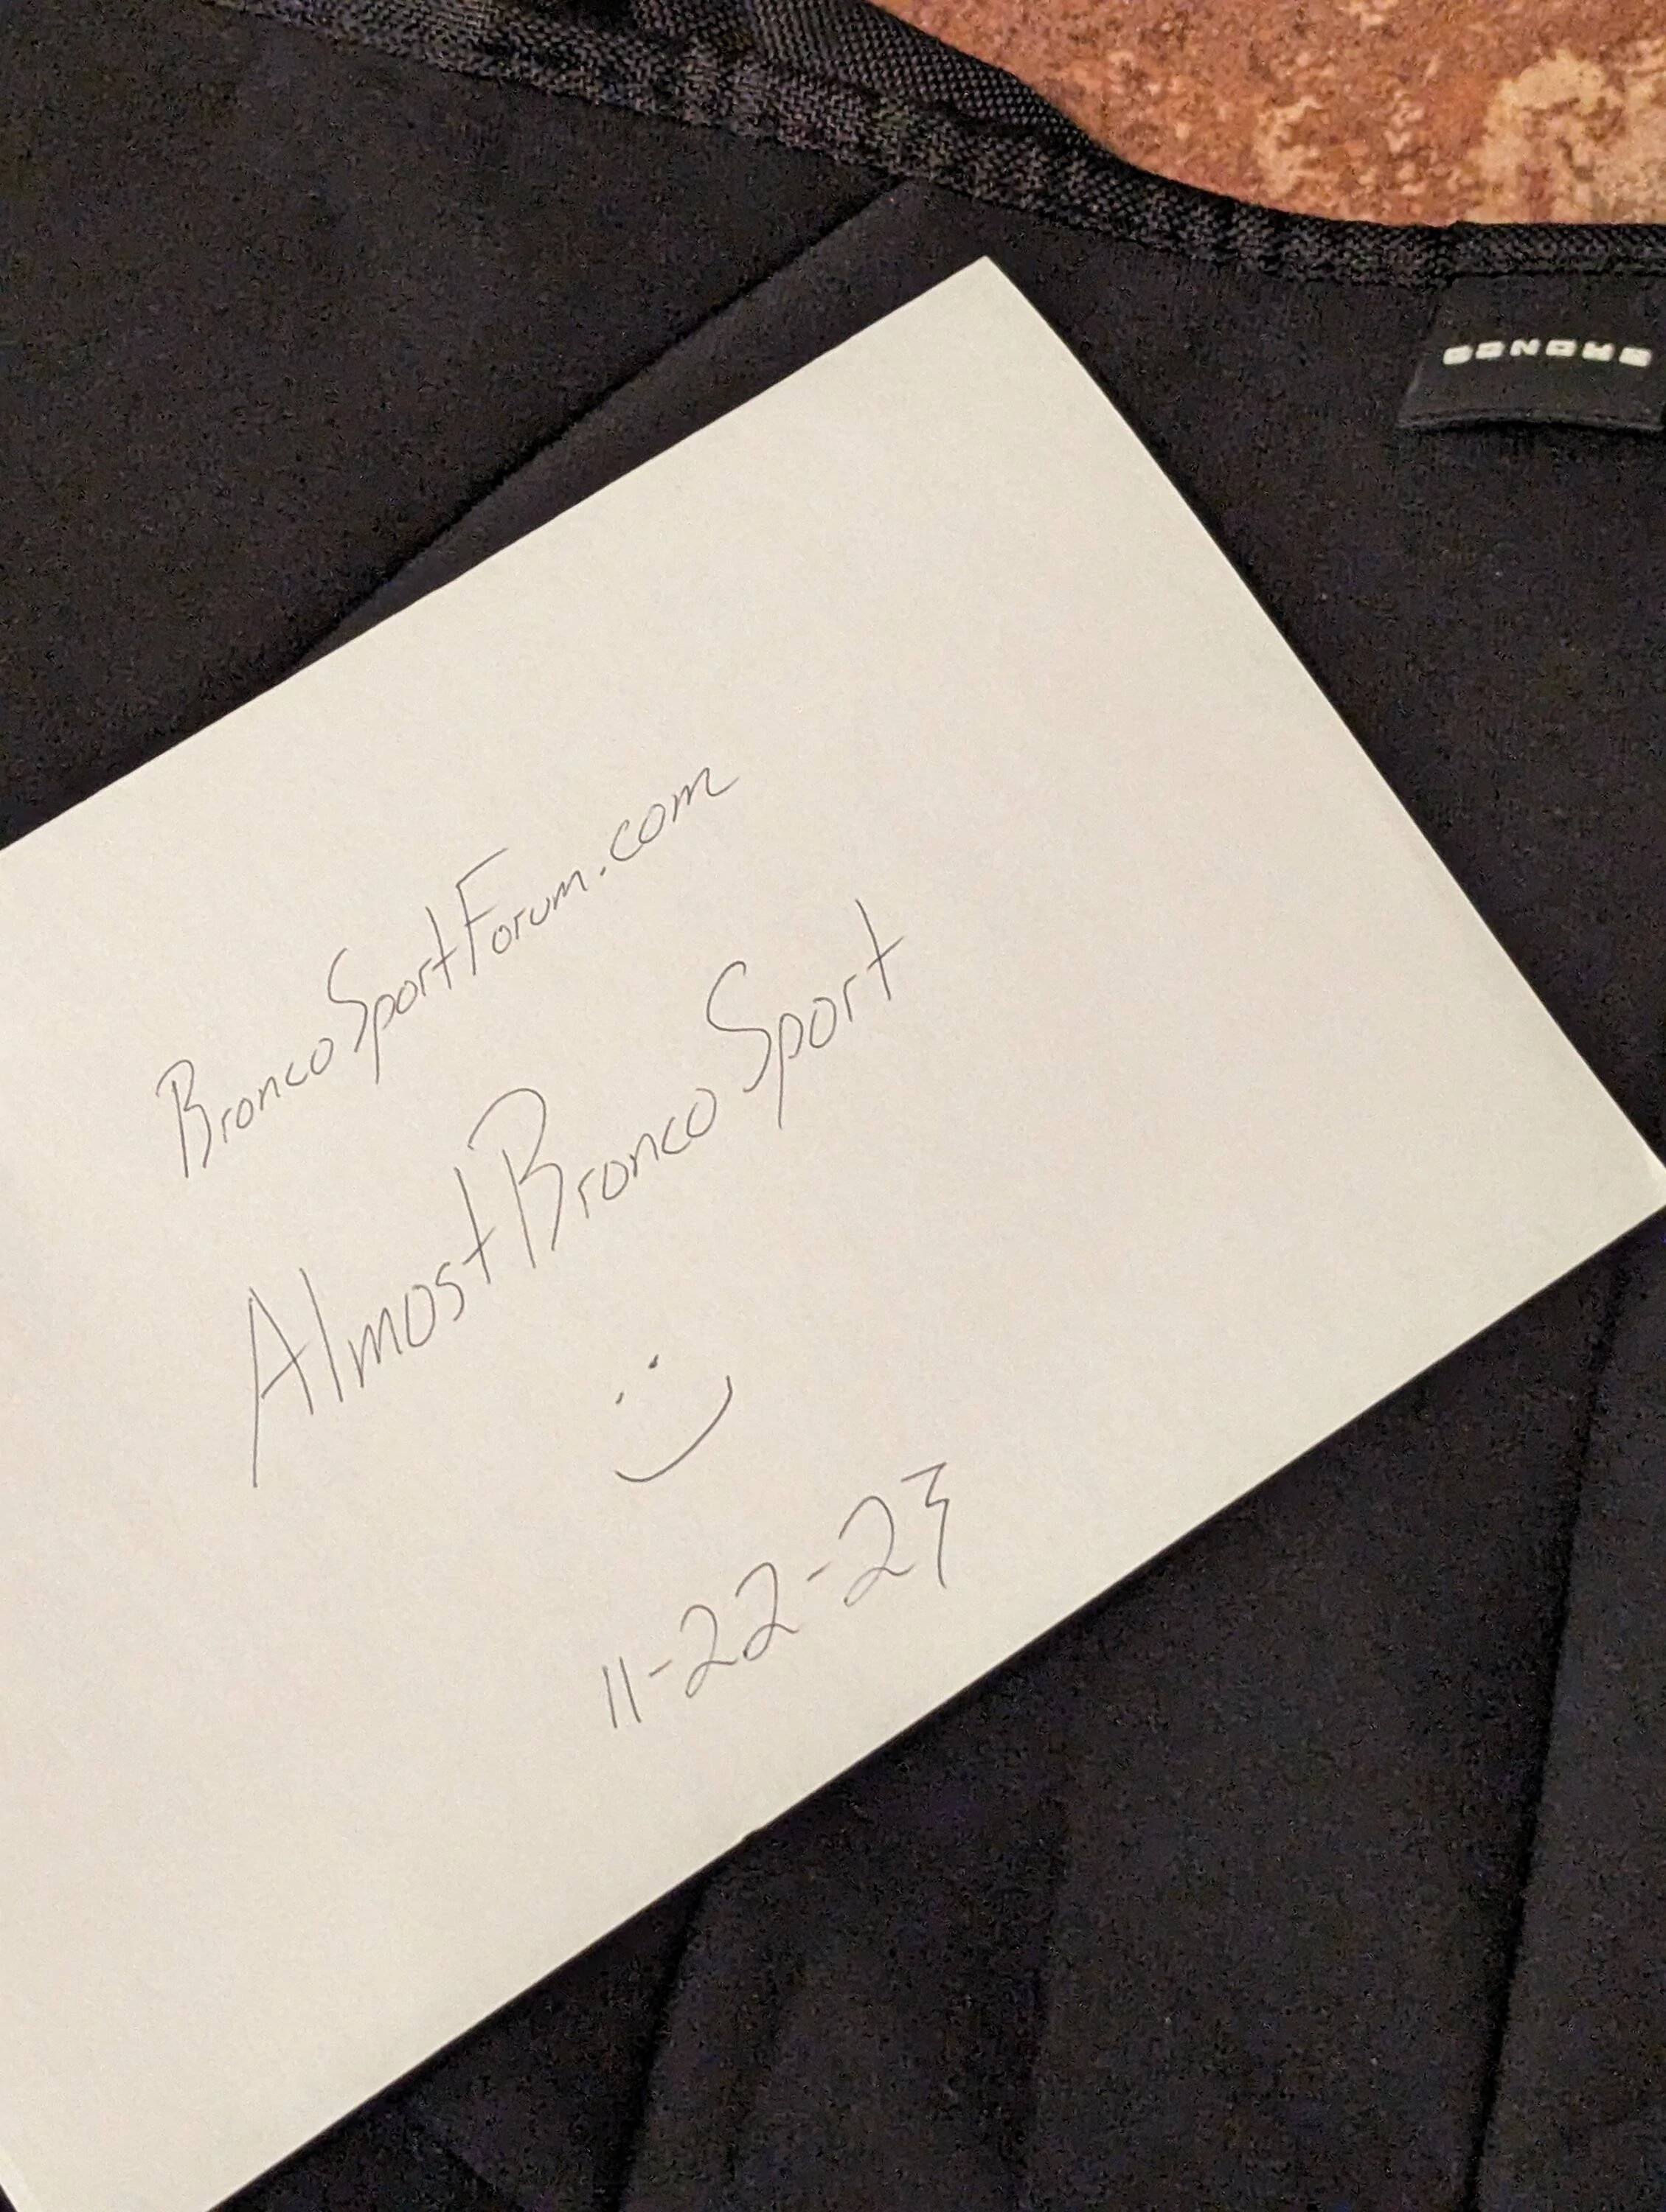 BRONCO
BroncoSportForum.com
AlmostBroncoSport
11-22-23